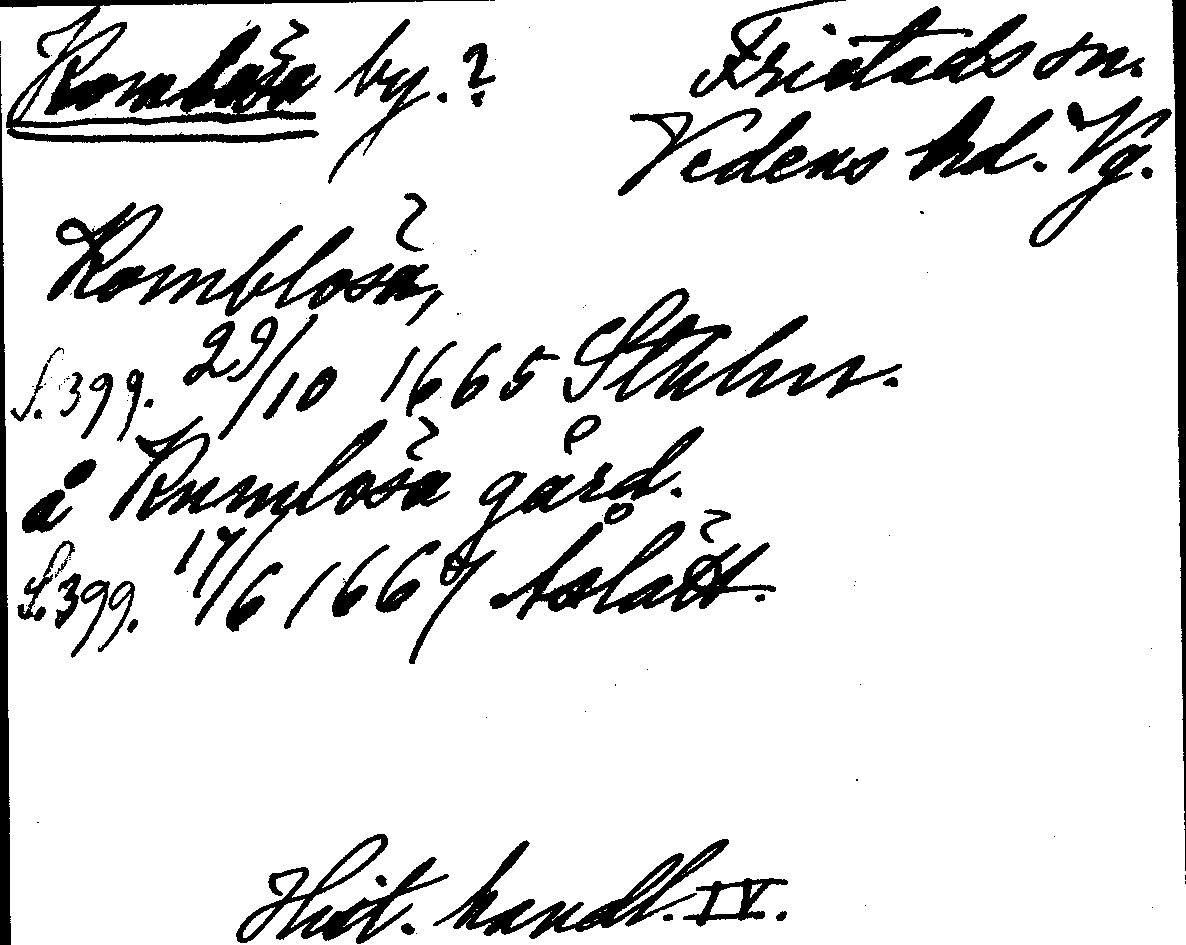 Komlösa by.?
Fristads sn.
Vedens hd. Vg.
Komblösä,
S. 399. 29/10 1665 Sthlm.
å Kumlösä gård.
S. 399. 17/6 1667 Åslätt.
Hist. handl. IV.